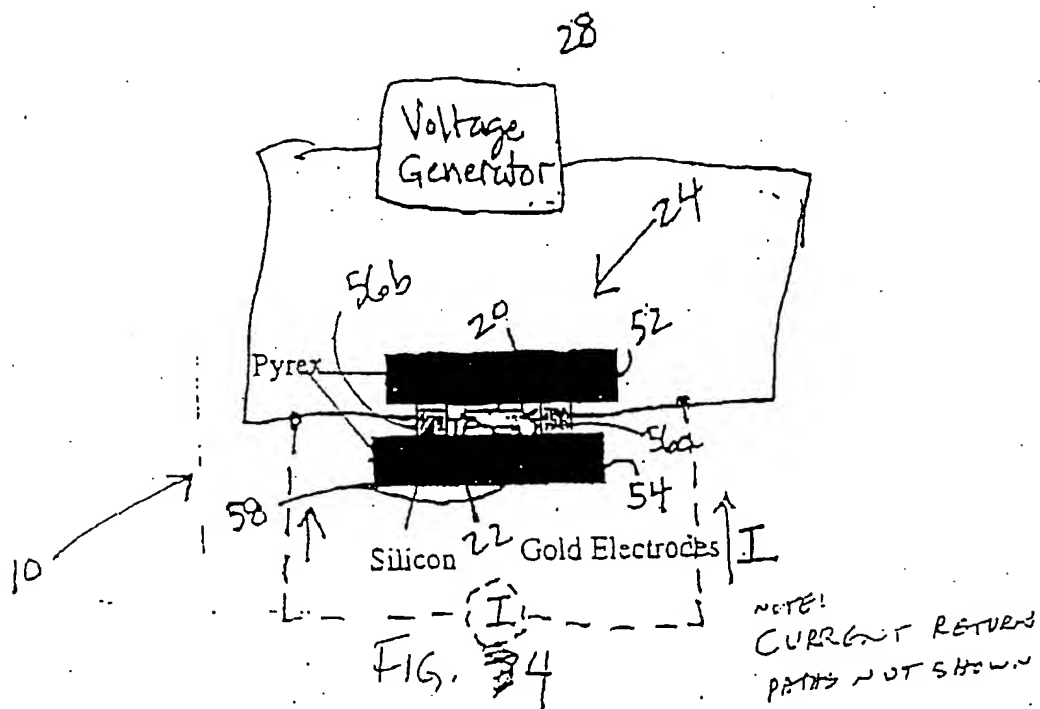 28
Voltage
Generator
24
56b
20
52
Pyrex
56a
58
54
10
Silicon
22
Gold Electrodes
I
I
FIG. 4
NOTE!
CURRENT RETURN
PATHS NOT SHOWN